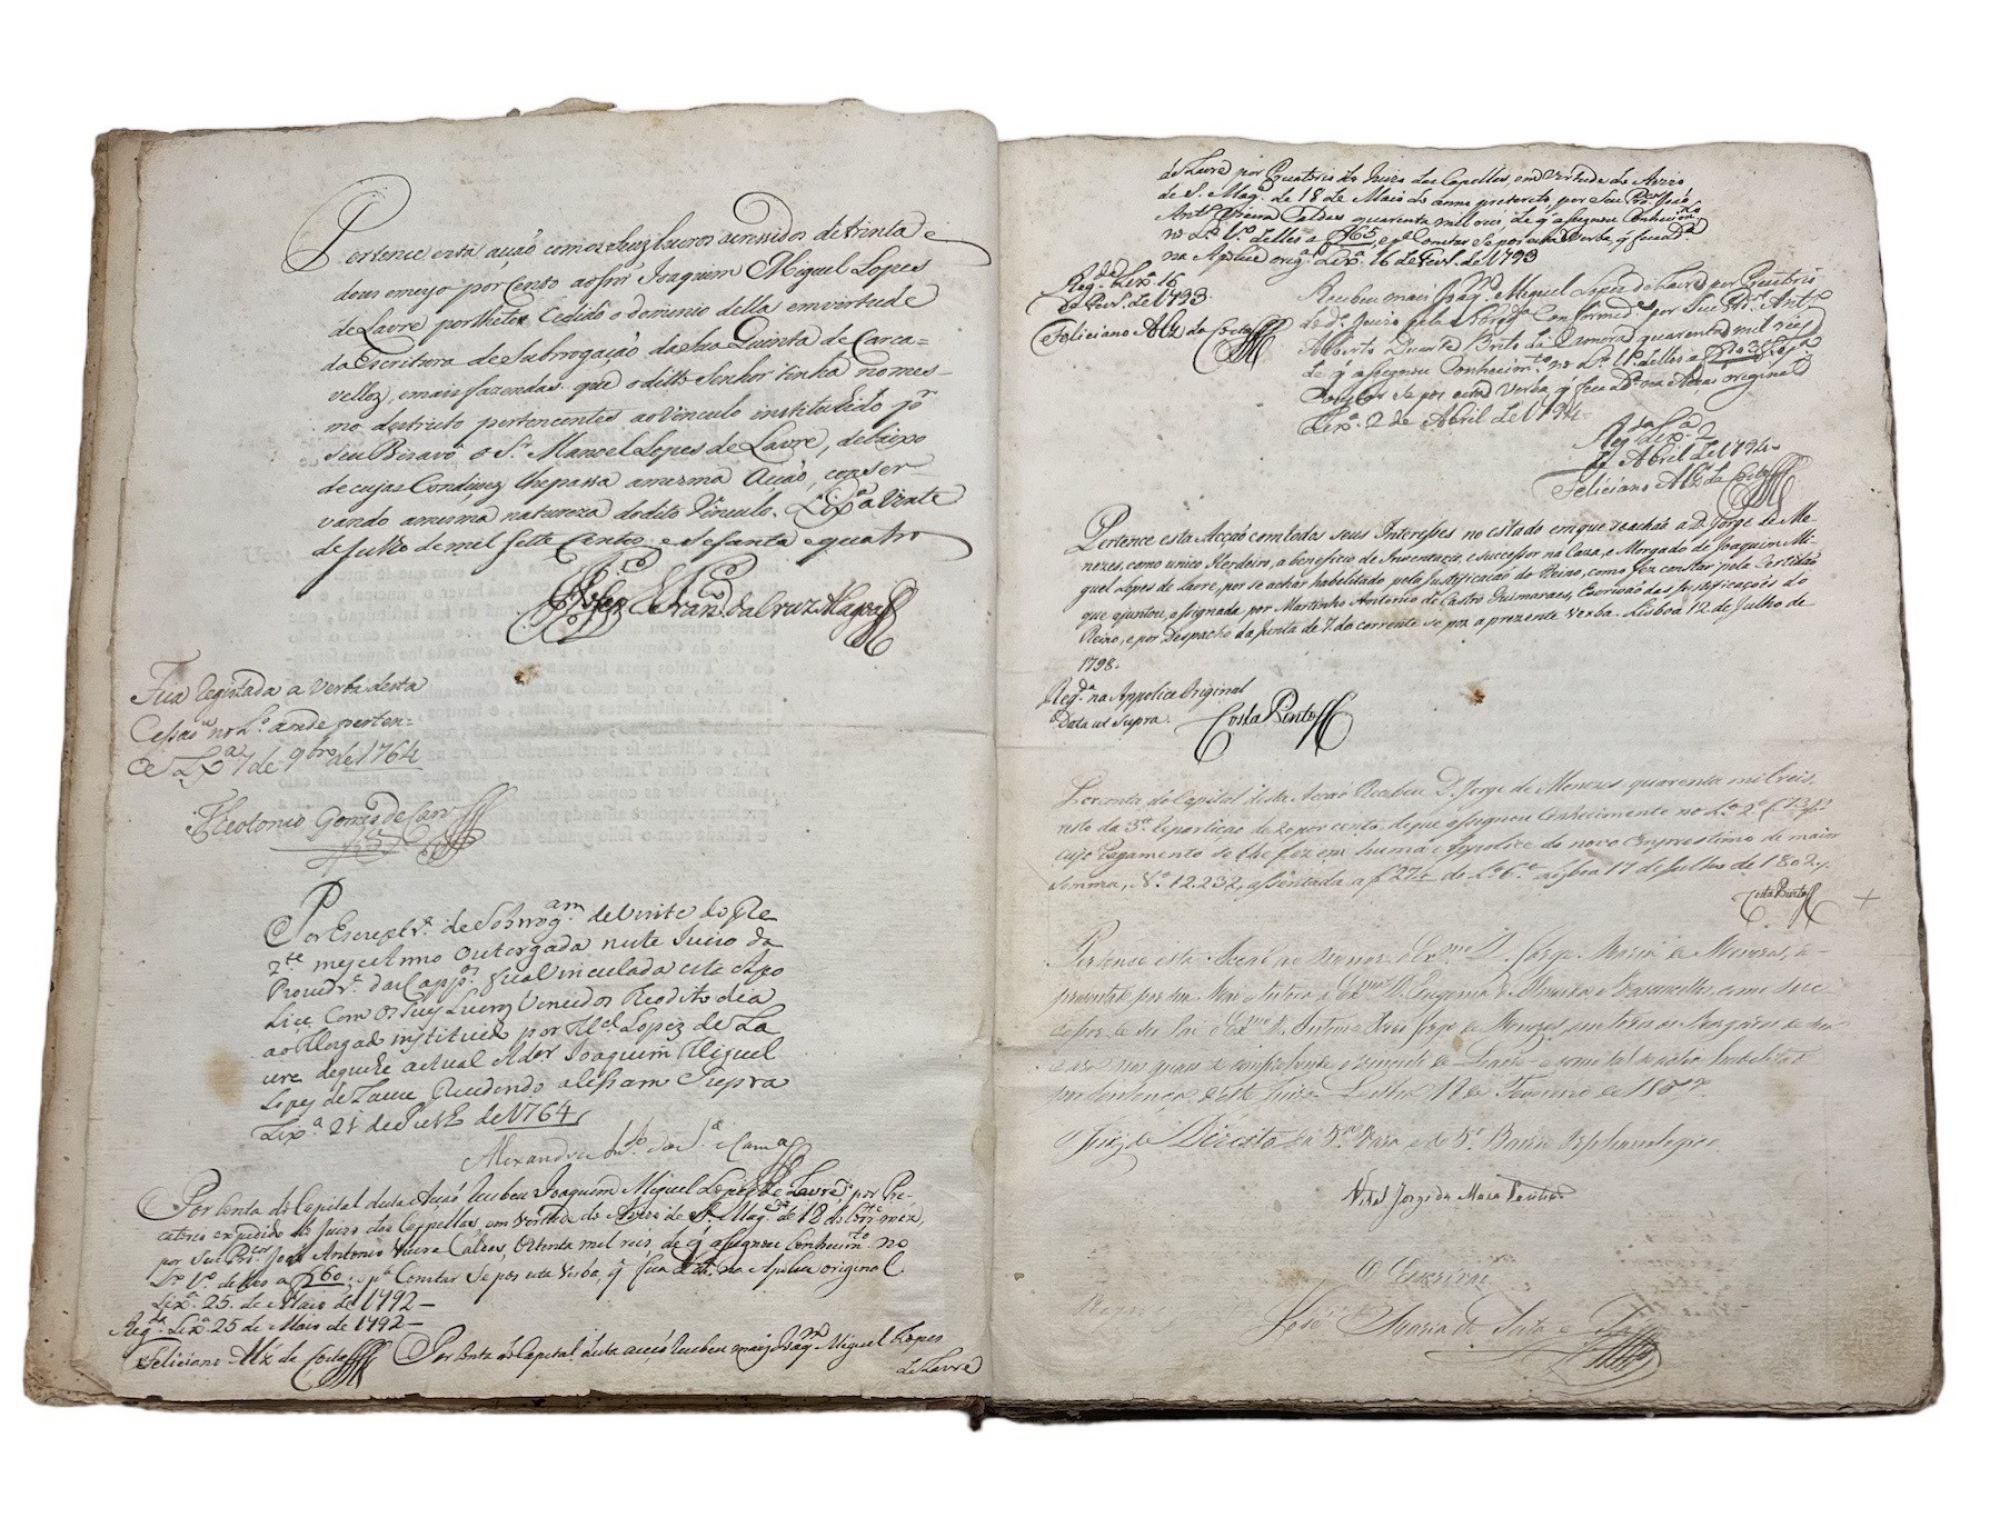 Pertence esta acção com os seus lucros acressidos de trinta e
dous e meyo por Cento ao Snr̃ Joaquim Miguel Lopes
de Lavre por lhe ter Cedido o dominio della em virtude
da Escritura de Subrrogação da Sua Quinta de Carca=
vellos, e mais fazendas que o ditto Senhor tinha no mes-
mo destricto pertencentes ao Vinculo instituhido p.r
seu Bizavô o S.r Manoel Lopes de Lavre, debaixo
de cujas Condiçoez lhe passa a mesma Acção, conser
vando a mesma natureza do dito Vinculo. Lix.a a Vinte
de Julho de mil Sette Centos e Sesanta e quatro
Joseph Fran.co da Cruz Alagoa
Fica Registada a Verba desta
Cessaõ no L.o a onde perten=
ce Lx.a 7 de 9bro de 1764
Theotonio Gomes de Carv.o
Por Escreptr.a de Sobrrog.am de Vinte do Pre
z.te mez e Anno Outorgada neste Juizo da
Proved.ra das Capp.as ficâ Vinculada esta Apo
lice Com os Seus Lucros Vencidos the o dito dia
ao Morgado instituido por M.el Lopez de La
vre de que he actual Ad.or Joaquim Miguel
Lopez de Lavre
Lix.a 21 de de 1764
Alexandre
Por Conta do Capital desta Acçaõ Recebeu Joaquim Miguel Lopes de Lavre, por Pre-
catorio expedido do Juizo das Cappellas, em Vertude do Avizo de S. Mag.de de 18 do Corr.e mez,
por Seu Pro.cor José Antonio Vieira Caldas, Oitenta mil reis, de q̃ assignou Conhecim.to no
L.ro 1.o delles a f 60; e p.a Constar se pos esta Verba, q̃ fica L.da na Apolice original.
Lix.a 25. de Maio de 1792 —
Reg.da Lix.a 25 de Maio de 1792 —
Feliciano Alz̃ da Costa
Por Conta do Capital desta acçaõ Recebeu mais Joaq.m Miguel Lopes
de Lavre
de Lavre por Precatorio do Juizo das Capellas, em Vertude do Avizo
de S. Mag.e de 18 de Maio do anno preterito, por Seu Pro.cor José
Ant.o Vieira Caldas quarenta mil reis, de q̃ assignou Conhecim.to
no L.ro 1.o delles a f 65, e p.a Constar se pos esta Verba, q̃ fica L.da
na Apolice orig.al Lix.a 16 de Fevr. de 1793
Reg.da Lix.a 16
de Fevr. de 1793.
Feliciano Alz̃ da Costa
Recebeu mais Joaq.m Miguel Lopes de Lavre por Precatorio
do d.o Juizo pela Conformid.e por Seu Pro.cor Ant.o
Alberto Duarte Brito de Camora quarenta mil reis
de q̃ assignou Conhecim.to no L.ro 1.o delles a f 103 e p.a
Constar se pos esta Verba, q̃ fica L.da na Apolice original
Lix.a 2 de Abril de 1794
Reg.da Lix.a 2
de Abril de 1794
Feliciano Alz̃ da Costa
Pertence esta Acçaõ com todos seus Interesses no estado em que se achaõ a D. Jorge de Me-
nezes, como unico Herdeiro, a beneficio de Inventario, e successor na Caza, e Morgado de Joaquim Mi-
guel Lopes de Lavre, por se achar habilitado pela Justificaçaõ do Reino, como fez constar pela Certidaõ
que ajuntou, assignada por Martinho Antonio de Castro Guimaraes, Escrivaõ das Justificações do
Reino, e por Despacho da Junta de 7 do corrente se poz a prezente Verba. Lisboa 12 de Julho de
1798.
Reg.da na Appolice Original
Data ut Supra.
Costa Pinto
Por conta do Capital desta Accaõ Recebeu D. Jorge de Menezes quarenta mil reis,
resto da 3.a Repartiçaõ de 20 por cento de que assignou Conhecimento no L.o 2.o f 131
cujo Pagamento se lhe fez em huma Appolice do novo Emprestimo de maior
Somma, N.o 12.232, assentada a f 274 do L.o 6.o Lisboa 17 de Julho de 1802.
Costa Pinto
Pertence esta Acçaõ ao Menor Ex.mo D. Jorge Maria de Menezes, re-
presentado por sua Mai e Tutora a Ex.ma D. Eugenia de Almeida e Vasconcellos, como suc-
cessor de seu Pai o Ex.mo D. Antonio José Jorge de Menezes, em todos os Morgados de sua
caza nos quaes se comprehende o de Lavre e como tal se acha habilitado
por Sentença deste Juizo Lisboa 17 de Fevereiro de
O Juiz de Direito da 5.a Vara e do 5.o Bairro
Vital Jorge da Maia
O Escrivaõ
José Maria de